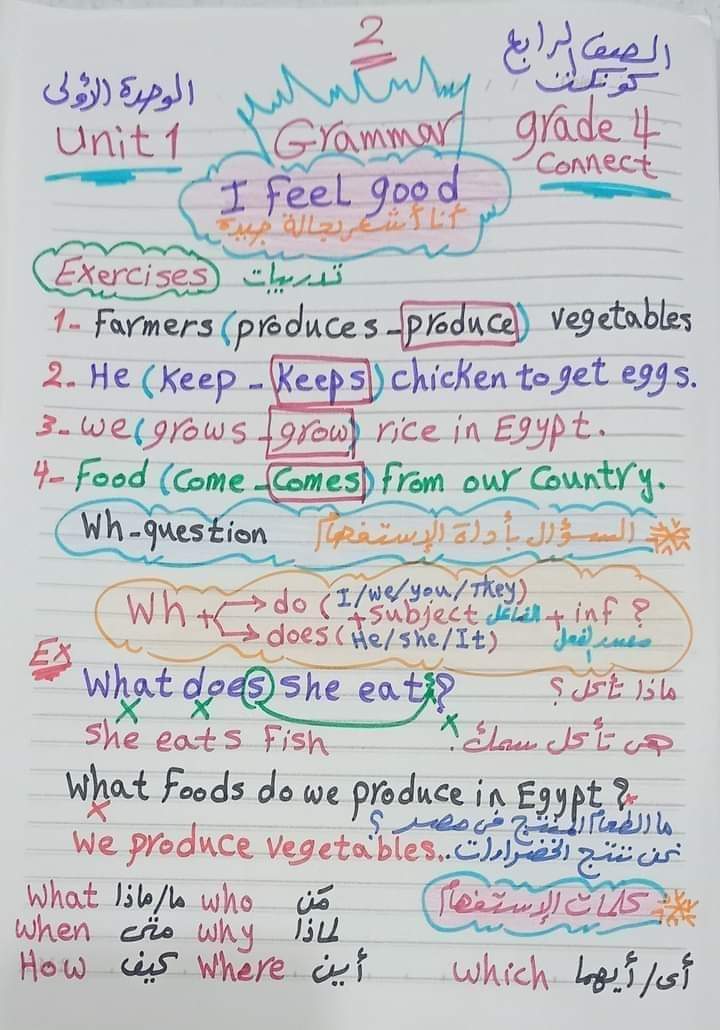 2
الصف الرابع
كونكت
الوحدة الأولى
Unit 1
Grammar
grade 4
Connect
I feel good
أنا أشعر بحالة جيدة
Exercises تدريبات
1- Farmers (produces - produce) vegetables
2- He (Keep - Keeps) chicken to get eggs.
3- we (grows - grow) rice in Egypt.
4- Food (Come - Comes) from our Country.
Wh-question السؤال بأداة الإستفهام
Wh + → do (I/we/you/They)
+ subject الفاعل + inf ?
→ does (He/she/It) مصدر الفعل
Ex
What does she eats? ماذا تأكل ؟
She eats fish هى تأكل سمك.
What foods do we produce in Egypt ?
ما الطعام المنتج فى مصر ؟
we produce vegetables.. نحن ننتج الخضراوات
What ما/ماذا who مَن كلمات الإستفهام
When متى why لماذا
How كيف Where أين which أى/أيهما